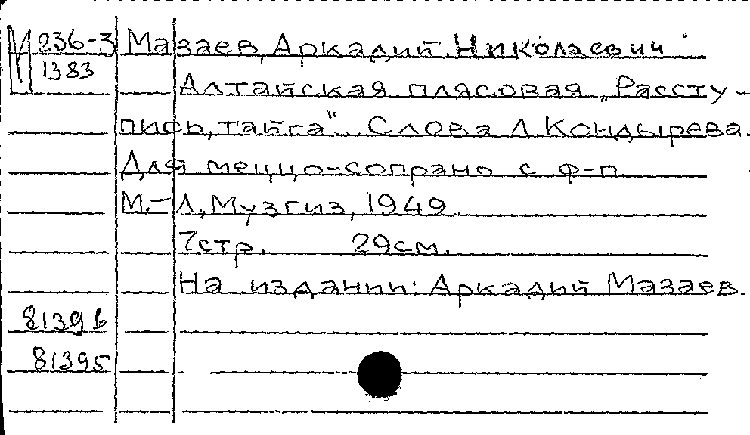 М 236-3 Мазаев, Аркадий Николаевич
1383
Алтайская плясовая „Рассту-
пись, тайга". Слова Л. Кондырева.
Для меццо-сопрано с ф-п.
М.-Л., Музгиз, 1949.
7стр. 29см.
На издании: Аркадий Мазаев.
81396
81395